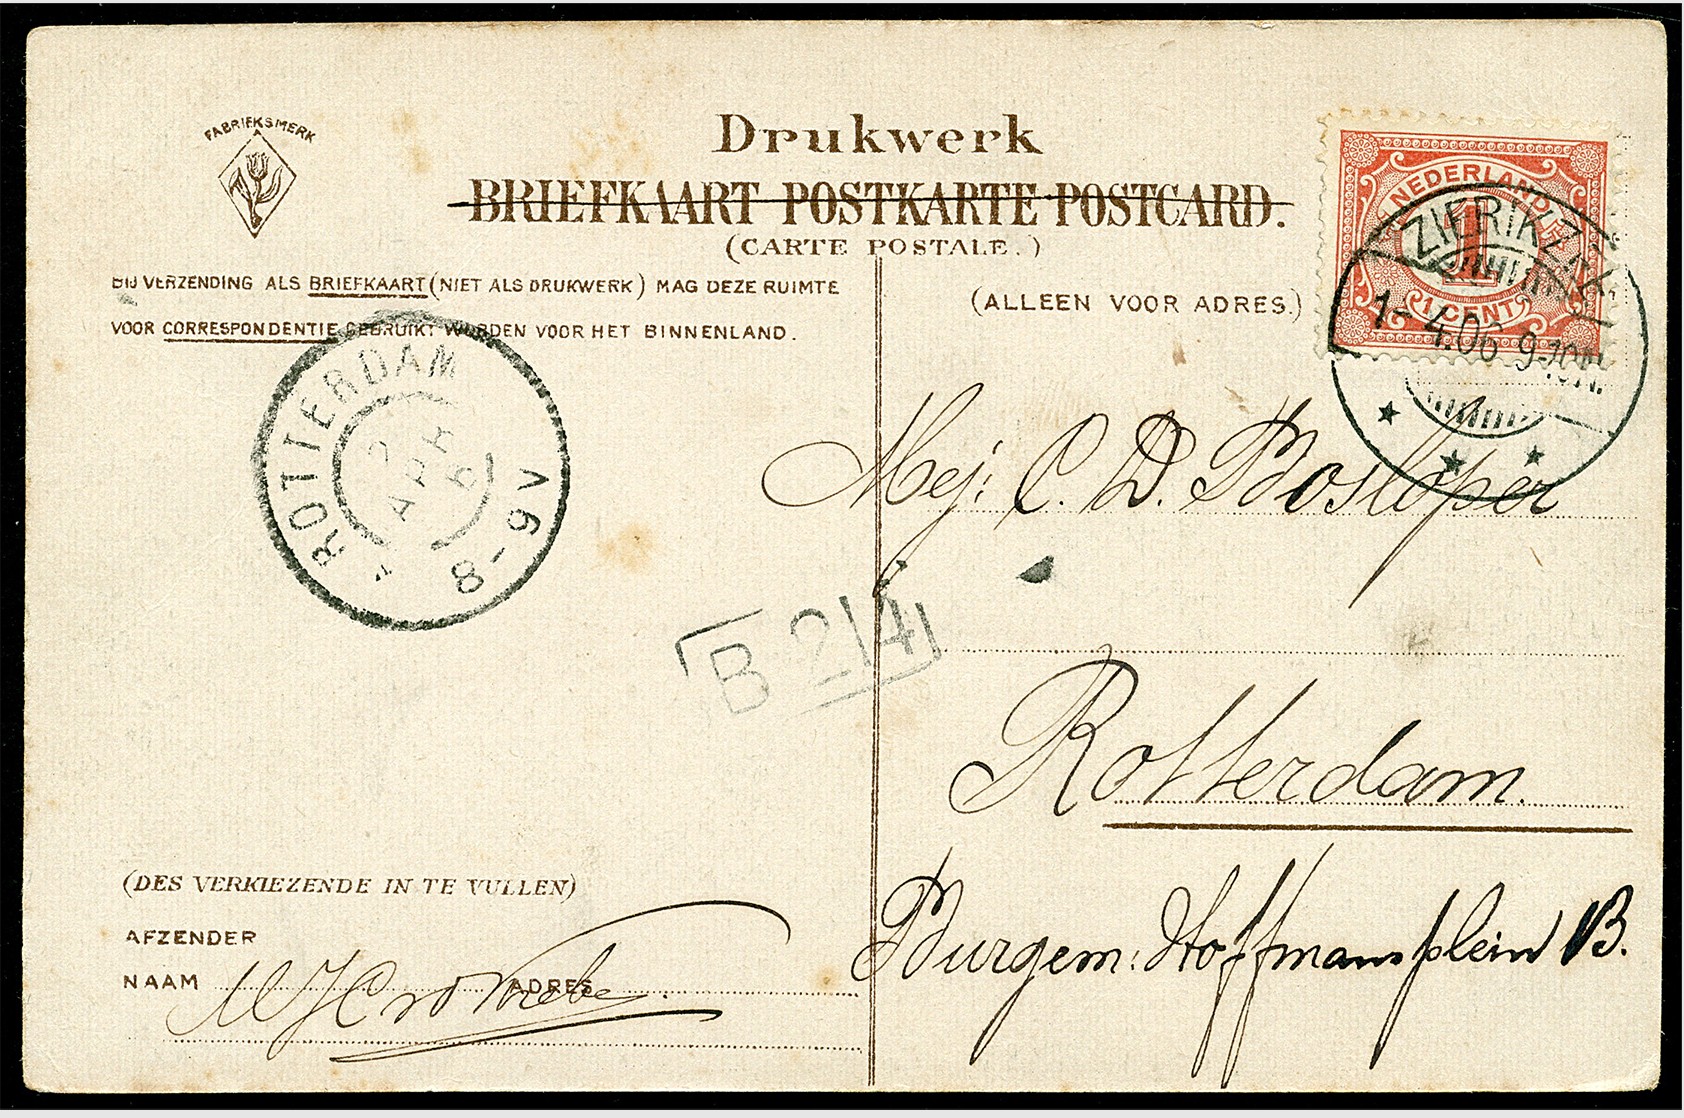 FABRIEKSMERK
Drukwerk
BRIEFKAART POSTKARTE POSTCARD.
(CARTE POSTALE.)
BIJ VERZENDING ALS BRIEFKAART (NIET ALS DRUKWERK) MAG DEZE RUIMTE
VOOR CORRESPONDENTIE GEBRUIKT WORDEN VOOR HET BINNENLAND.
(ALLEEN VOOR ADRES.)
NEDERLAND
1
1 CENT
ZIERIKZEE
1-4.06 9-10N.
ROTTERDAM
2
APR
6
8-9V
B 214
Mej: C. D. Bosloper
Rotterdam.
Burgem: Hoffmansplein 1B.
(DES VERKIEZENDE IN TE VULLEN)
AFZENDER
NAAM ADRES